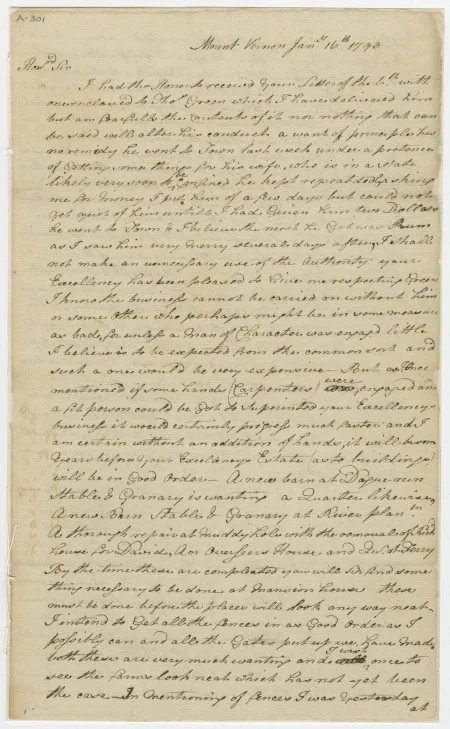 A-301
Mount Vernon Jany 16th 1793
Honrd Sir
I had the Honor to received your Letter of the 6th with
one enclosed to Thos Green which I have delivered him
but am Parfull the Contents of it nor nothing that can
be said will alter his conduct a want of principle has
no remedy he went to Town last week under a pretence
of Getting some things for his wife, who is in a state
likely very soon to be confined he kept repeatedly asking
me for money I put him of a few days but could not
Get quit of him untill I had Given him two Dollars
he went to Town & I believe the most he Got was Rum
as I saw him very merry several days after, I shall
not make an unnecessary use of the Authority your
Excellency has been pleased to Give me respecting Green
I know the business cannot be carried on without him
or some other who perhaps might be in some measure
as bad, for unless a man of Character was engagd little
I believe is to be expected from the common sort and
such a one would be very expensive - But as once
mentioned if some hands (Carpenters) were engaged and
a fit person could be Got to Superintend your Excellencys
business it would certainly progress much faster and I
am certain without an addition of hands, it will be some
years before your Excellencys Estate (as to buildings)
will be in Good order - A new barn at Dogue run
Stable & Granary is wanting a Quarter likewise,
A new Barn Stable & Granary at River plann
A thorough repair at muddy hole with the removal of
house for Davids, An Overseers House and at Ferry
By the time these are compleated you will find some
thing necessary to be done at Mansion house these
must be done before the places will look any way neat
I intend to Get all the fences in as Good order as I
possibly can and all the Gates put up we have made,
both these are very much wanting and I wish once to
see the farms look neat which has not yet been
the case - In mentioning of fences I was yesterday at